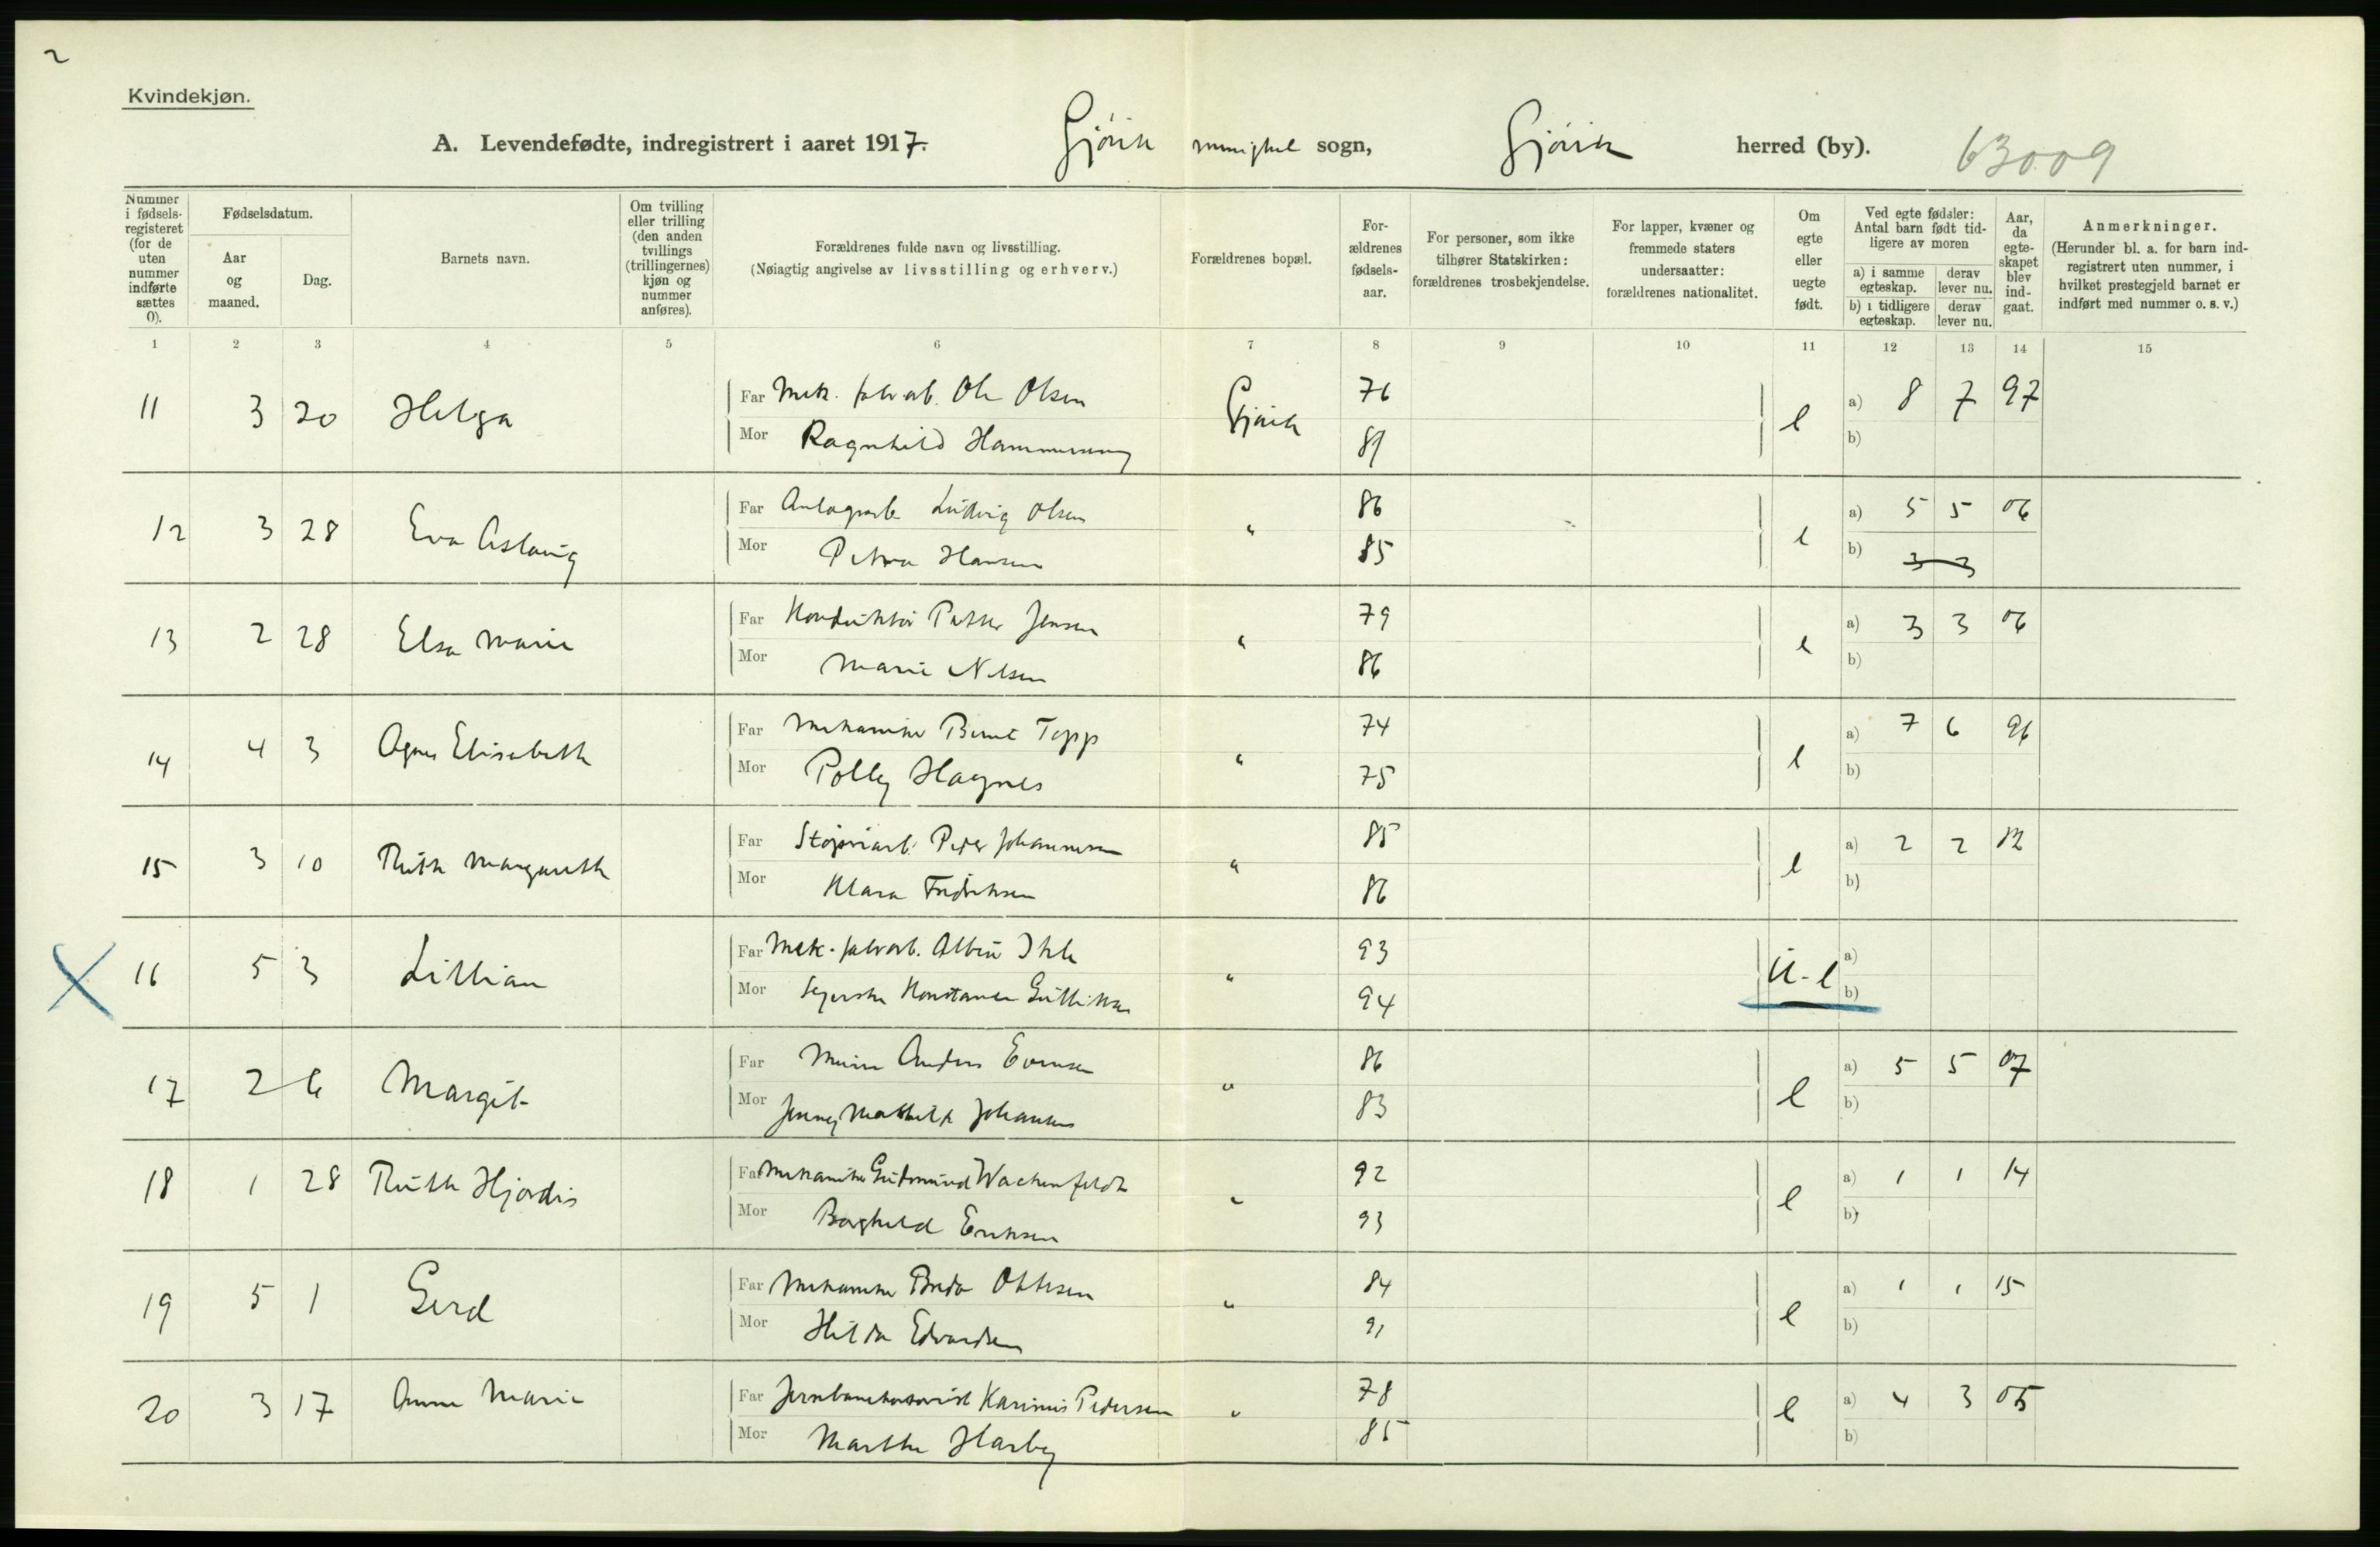 2
Kvindekjøn.
A. Levendefødte, indregistrert i aaret 1917. Gjövik menighet sogn, Gjövik herred (by). 63009
Nummer i fødsels-registeret (for de uten nummer indførte sættes 0).
Fødselsdatum.
Aar og maaned.
Dag.
Barnets navn.
Om tvilling eller trilling (den anden tvillings (trillingernes) kjøn og nummer anføres).
Forældrenes fulde navn og livsstilling.
(Nøiagtig angivelse av livsstilling og erhverv.)
Forældrenes bopæl.
For-ældrenes fødsels-aar.
For personer, som ikke tilhører Statskirken: forældrenes trosbekjendelse.
For lapper, kvæner og fremmede staters undersaatter: forældrenes nationalitet.
Om egte eller uegte født.
Ved egte fødsler: Antal barn født tid-ligere av moren
a) i samme egteskap. derav lever nu.
b) i tidligere egteskap. derav lever nu.
Aar, da egte-skapet blev ind-gaat.
Anmerkninger.
(Herunder bl. a. for barn ind-registrert uten nummer, i hvilket prestegjeld barnet er indført med nummer o. s. v.)
1 2 3 4 5 6 7 8 9 10 11 12 13 14 15
11 3 20 Helga Far Mek. fabrarb. Ole Olsen Gjövik 76 e a) 8 7 97
Mor Ragnhild 81 b)
12 3 28 Eva Aslaug Far Ludvig Olsen " 86 e a) 5 5 06
Mor Petra Hansen 85 b) 3 3
13 2 28 Elsa Marie Far Konduktör Petter Jensen " 79 e a) 3 3 06
Mor Marie Nilsen 86 b)
14 4 3 Agnes Elisabeth Far Mekaniker Bernt Topp " 74 e a) 7 6 96
Mor Polly Hagnes 75 b)
15 3 10 Ruth Margareth Far Peder Johannesen " 85 e a) 2 2 12
Mor Klara Fredriksen 86 b)
16 5 3 Lillian Far Mek. fabrarb. Albin Ihle " 93 U-e a)
Mor Konstance Gulliksen 94 b)
17 2 6 Margit Far Murer Anders Evensen " 86 e a) 5 5 07
Mor Jenny Mathilde Johansen 83 b)
18 1 28 Ruth Hjördis Far Mekaniker Gudmund Wachenfeldt " 92 e a) 1 1 14
Mor Borghild Eriksen 93 b)
19 5 1 Gerd Far Mekaniker Ottesen " 84 e a) 1 1 15
Mor Hilda Edvardsen 91 b)
20 3 17 Anne Marie Far Karinius Pedersen " 78 e a) 4 3 05
Mor Marthe Harby 85 b)